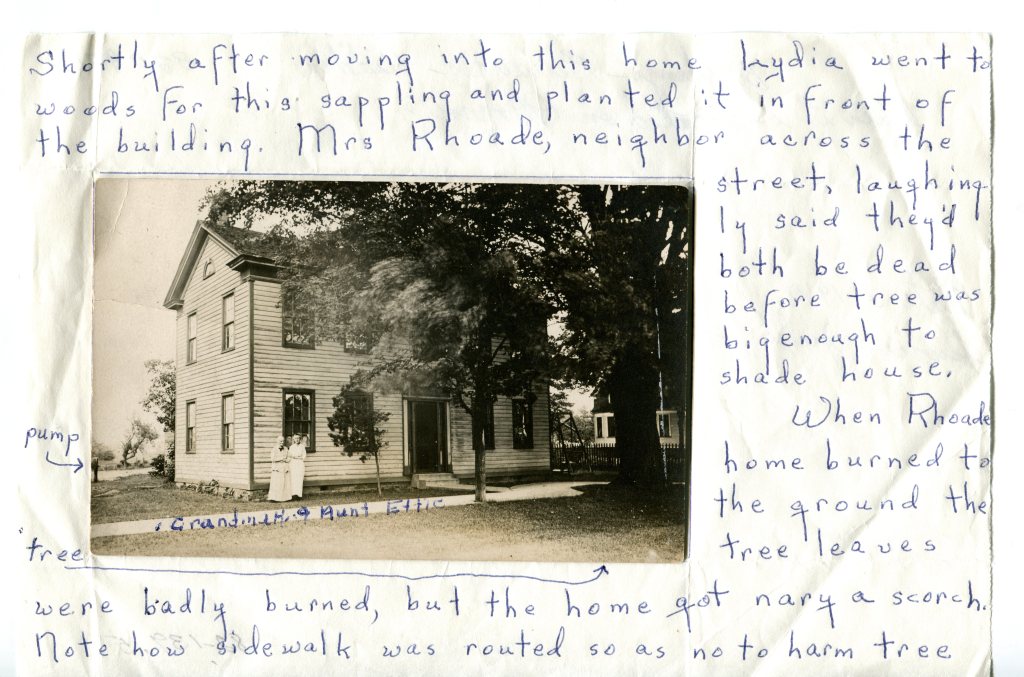 Shortly after moving into this home Lydia went to
woods for this sappling and planted it in front of
the building. Mrs Rhoade, neighbor across the
street, laughing-
ly said they'd
both be dead
before tree was
big enough to
shade house.
When Rhoade
home burned to
the ground the
tree leaves
were badly burned, but the home got nary a scorch.
Note how sidewalk was routed so as no to harm tree
pump
tree
& Aunt Effie